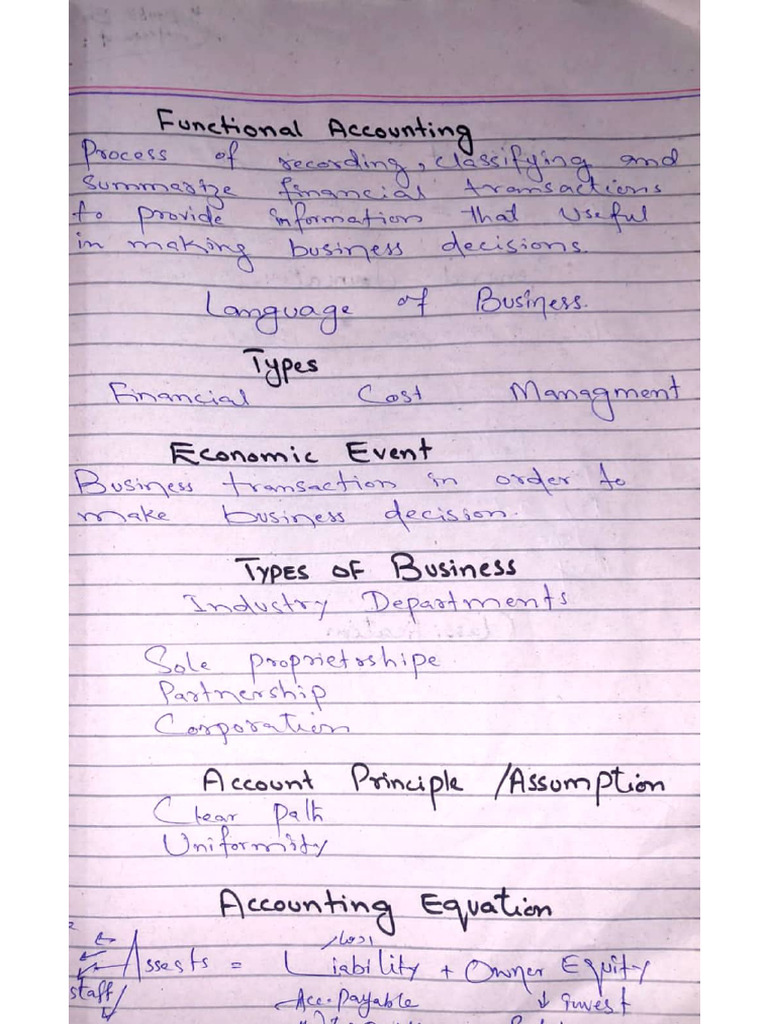 Functional Accounting
Process of recording, classifying and
summarize financial transactions
to provide information that useful
in making business decisions.
Language of Business.
Types
Financial Cost Managment
Economic Event
Business transaction in order to
make business decission.
TYPES OF Business
Industry Departments
Sole proprietorshipe
Partnership
Corporation
Account Principle /Assumption
Clear path
Uniformity
Accounting Equation
ادھار
Assests = Liability + Owner Equity
staff Acc. Payable ↓ invest